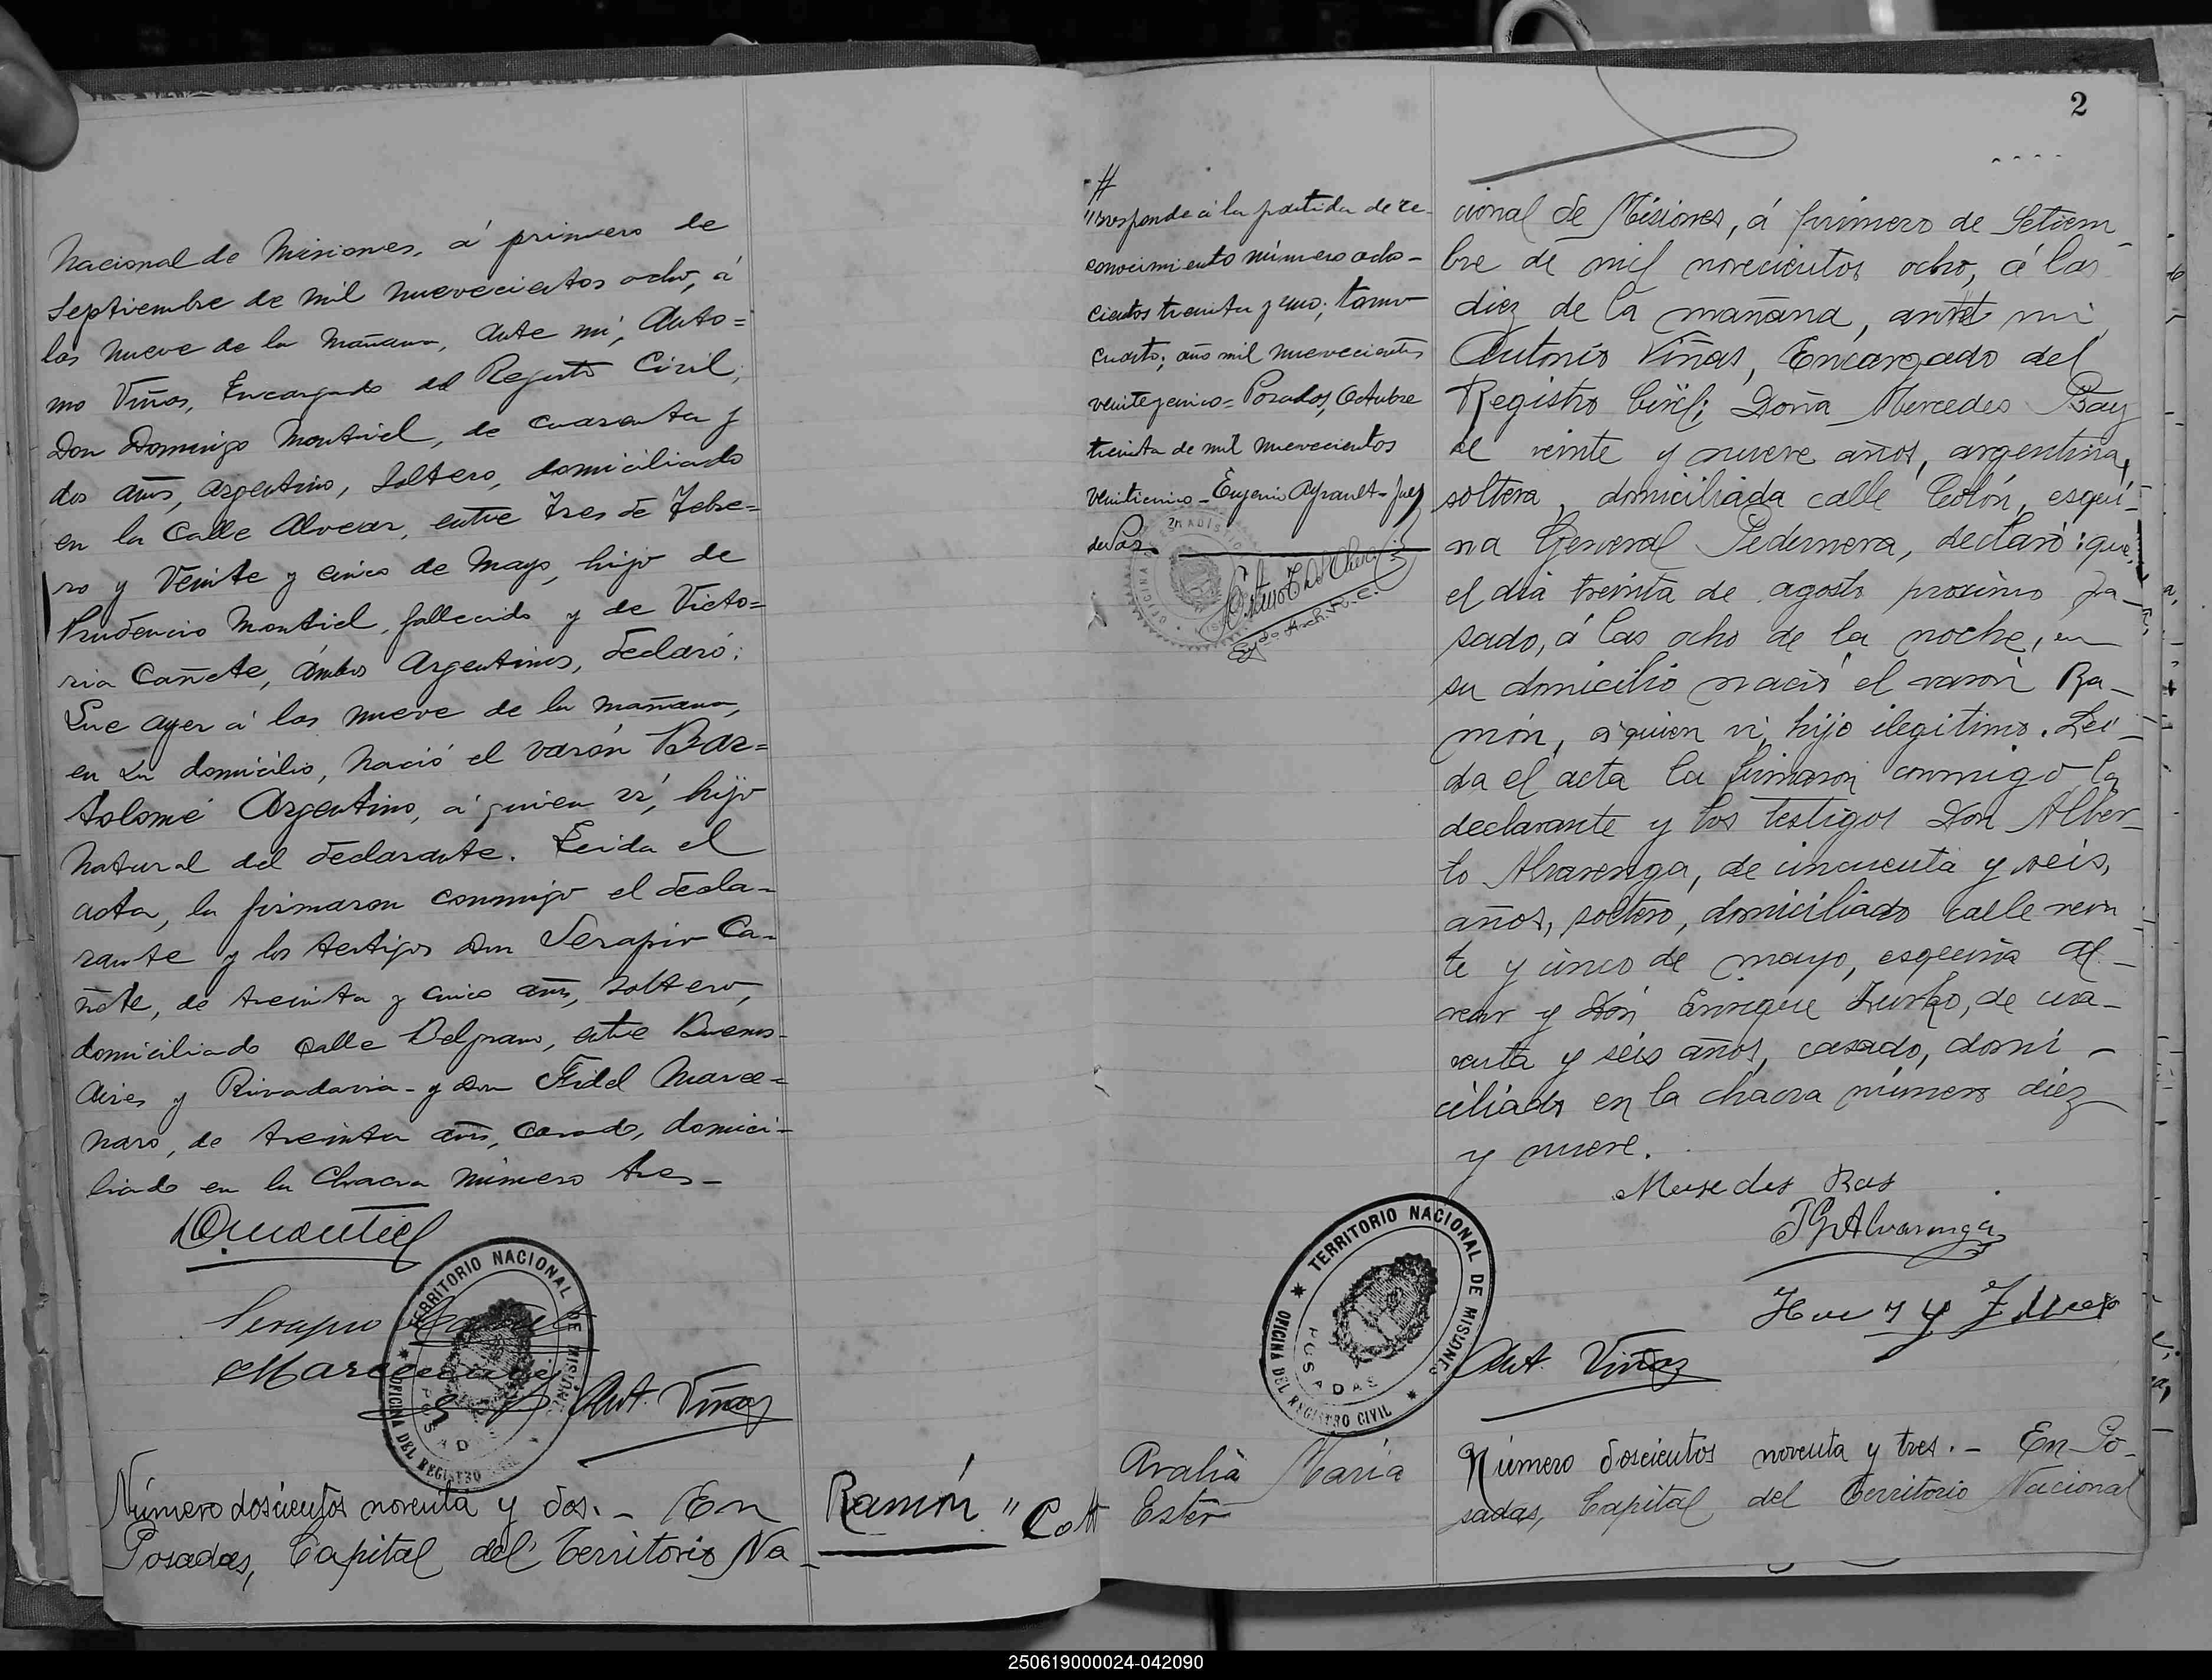 Nacional de Misiones, á primero de
Septiembre de mil nuevecientos ocho, á
las nueve de la mañana, ante mi, Anto=
nio Viñas, Encargado del Registro Civil;
Don Domingo Montiel, de cuarenta y
dos años, argentino, soltero, domiciliado
en la Calle Alvear, entre Tres de Febre=
ro y Veinte y cinco de Mayo, hijo de
Prudencio Montiel, fallecido y de Victo=
ria Cañete, ámbos Argentinos, declaró:
Que ayer á las nueve de la mañana,
en su domicilio, nació el varón Bar=
tolomé Argentino, á quien ví, hijo
natural del declarante. Leida el
acta, la firmaron conmigo el decla-
rante y los testigos Don Serapio Ca-
ñete, de treinta y cinco años, soltero,
domiciliado calle Belgrano, entre Buenos-
Aires y Rivadavia - y Don Fidel Marce=
naro, de treinta años, casado, domici-
liado en la Chacra número tres -
DMontiel
Serapio Cañete
Marcenaro
Ant. Viñas
TERRITORIO NACIONAL DE MISIONES
POSADAS
OFICINA DEL REGISTRO CIVIL
Número doscientos noventa y dos. - En
Posadas, Capital del Territorio Na-
Ramón " Co #
2
#
"rresponde á la partida de re-
conocimiento número ocho-
cientos treinta y uno; tomo
cuarto; año mil nuevecientos
veinte y cinco = Posadas, Octubre
treinta de mil nuevecientos
veinticinco - Eugenio Ayrault - Juez
de Paz.
cional de Misiones, á primero de Setiem-
bre de mil novecientos ocho, á las
diez de la mañana, ante mi
Antonio Viñas, Encargado del
Registro Civil; Doña Mercedes Bay
de veinte y nueve años, argentina,
soltera, domiciliada calle Colón, esqui-
na General Pedernera, declaró: que
el día treinta de agosto proximo pa-
sado, á las ocho de la noche, en
su domicilio nació el varón Ra-
món, a quien ví, hijo ilegitimo. Lei-
da el acta la firmaron conmigo la
declarante y los testigos Don Alber-
to Alvarenga, de cincuenta y seis,
años, soltero, domiciliado calle vein
te y cinco de mayo, esquina Al-
vear y Don Enrique, de cua-
renta y séis años, casado, domi-
ciliado en la chacra número diez
y nueve.
Mersedes Bas
Alvarenga
Ant. Viñas
TERRITORIO NACIONAL DE MISIONES
POSADAS
OFICINA DEL REGISTRO CIVIL
Avalia María
Ester
Número doscientos noventa y tres. - En Po-
sadas, Capital del Territorio Nacional
250619000024-042090